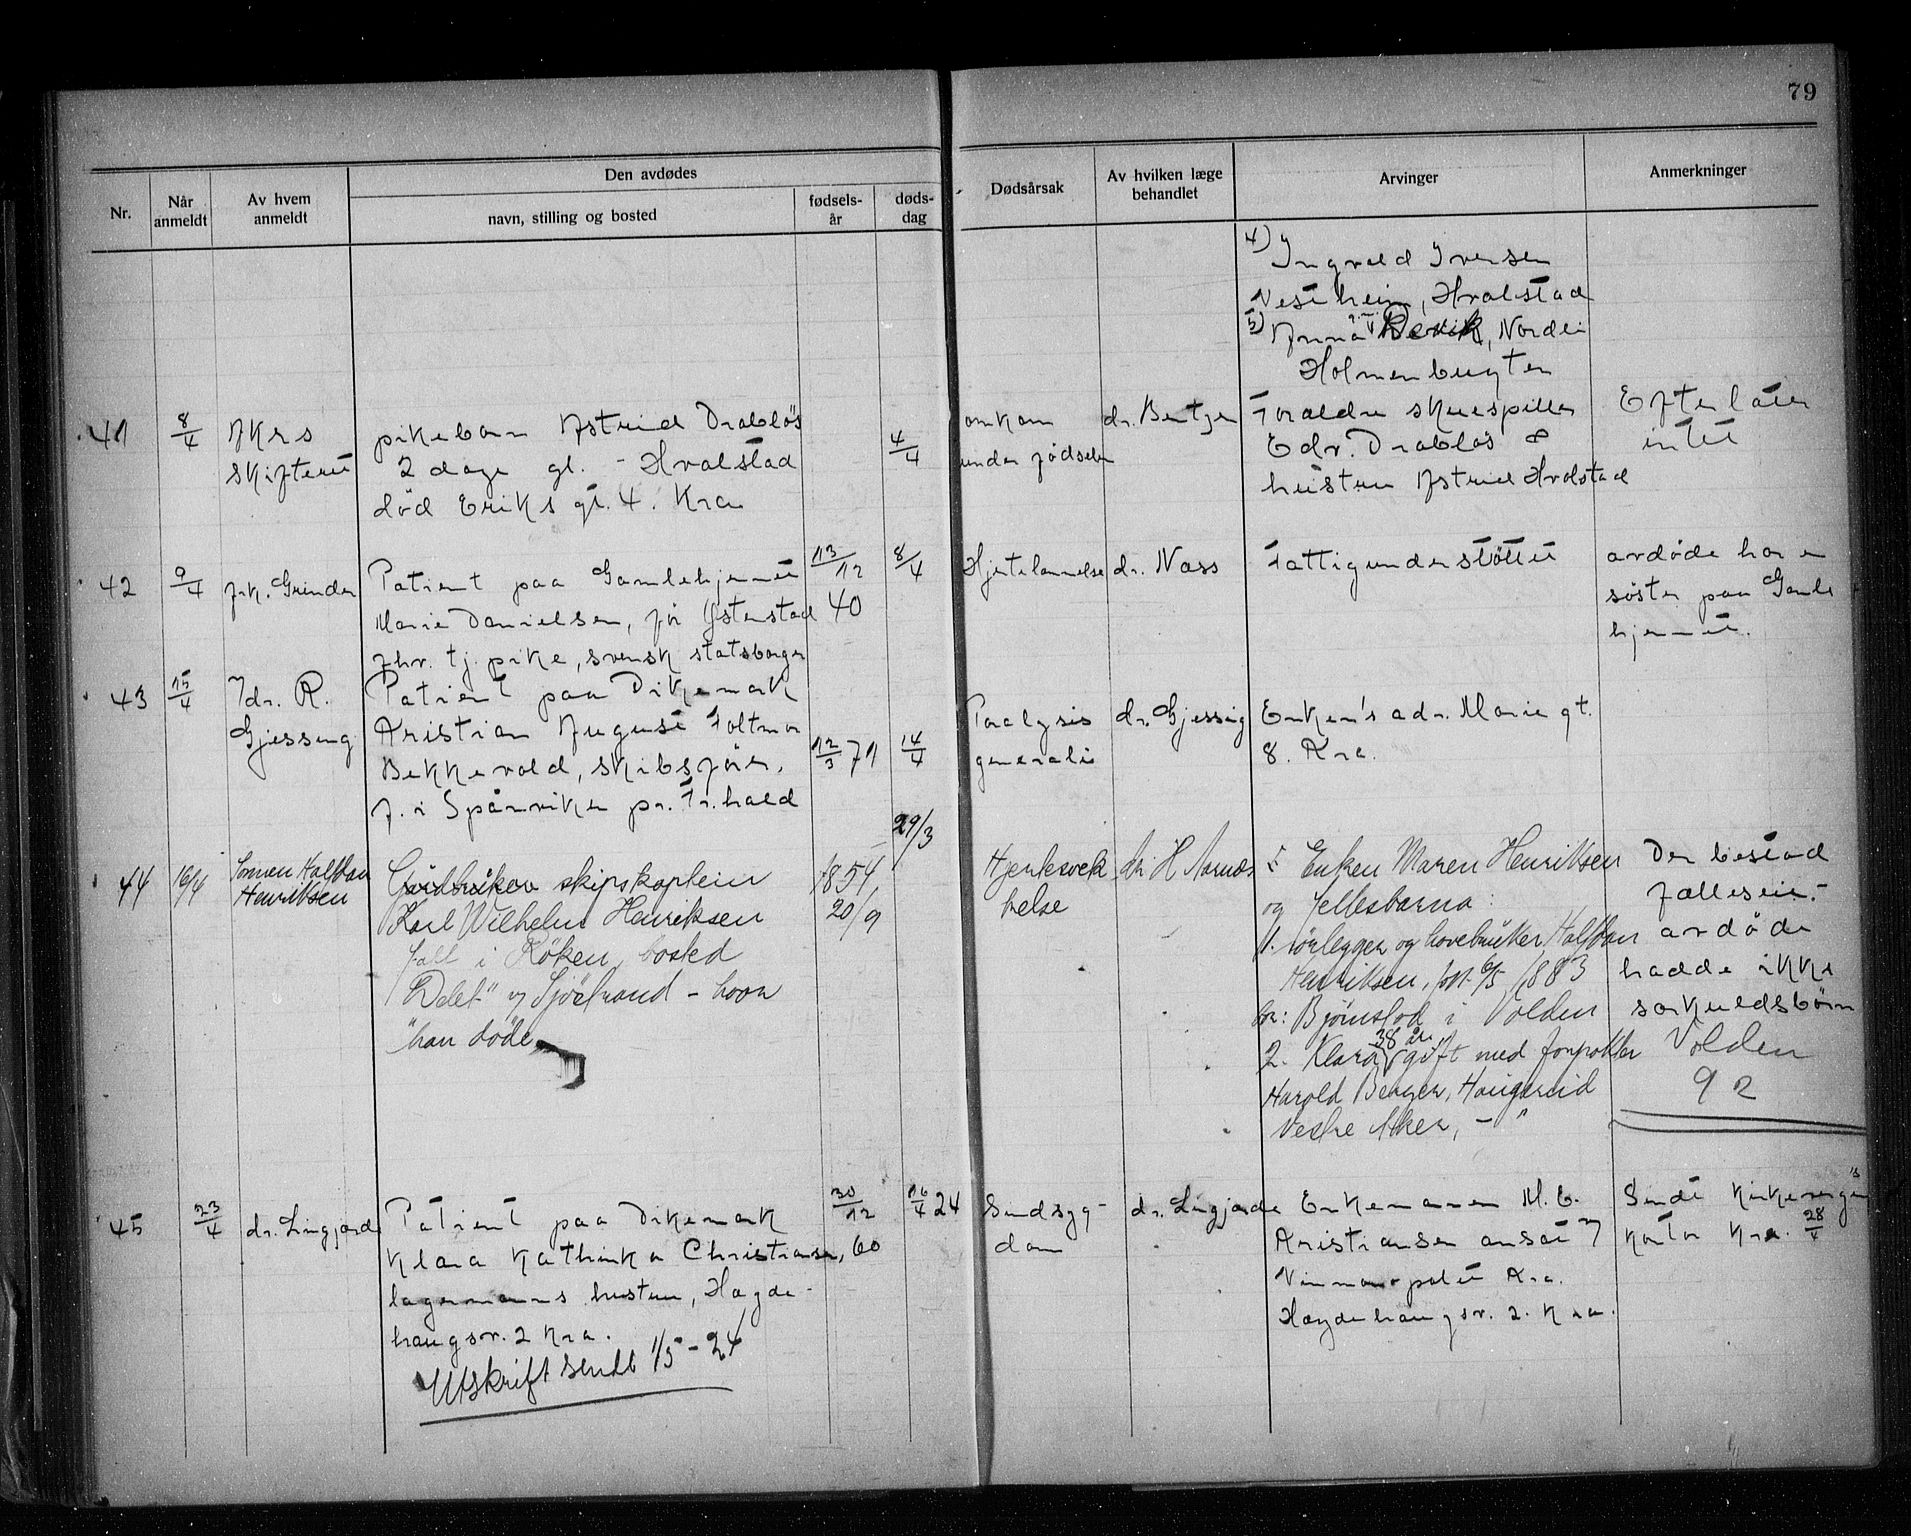 79
Nr.
Når anmeldt
Av hvem anmeldt
Den avdødes
navn, stilling og bosted
fødsels-år
døds-dag
Dødsårsak
Av hvilken læge behandlet
Arvinger
Anmerkninger
4)
Ingvald Iversen
Vestheim, Hvalstad
5) Anna Revik, Nordli
Holmenbugten
41
8/4
Akrs
skifteret
pikebarn Astrid Drabløs
2 dage gl. - Hvalstad
død Eriks gt. 4. Kra
4/4
omkom
under fødselen
dr. Bentzen
Foraldre skuespiller
Edv. Drabløs &
hustru Astrid Hvalstad
Efterlater
intet
42
9/4
frk. Grinder
Patient paa Gamlehjemmet
Marie Danielsen, før Østenstad
fhv. tj. pike, svensk statsborger
13/12
40
8/4
Hjertelammelse
dr. Næss
Fattigunderstøttet
avdøde har en
søster paa Gamle
hjemmet.
43
15/4
dr. R.
Gjessing
Patient paa Dikemark
Kristian August Foltmar
Bekkevold, skibsfører,
f. i Spånviken pr. Fr.hald
12/3 71
14/4
Paralysis
generalis
dr. Gjessing
Enken's adr. Marie gt.
8. Kra.
44
16/4
Sønnen Halfdan
Henriksen
Gårdbruker skipskaptein
Karl Wilhelm Henriksen
født i Røken, bosted
"Delet" v/ Sjøstrand - hvor
han døde
1854
20/9
29/3
Hjertesvek
kelse
dr. H Aarnes
Enken Maren Henriksen
og fellesbarna:
1. rørlegger og havebruker Halfdan
Henriksen, født 6/5 1883
bor: Bjørnstad i Volden
2. Klara 38 år, gift med forpakter
Harold Berger, Haugareid
Vestre Aker, - "
Der bestod
fælleseie.
avdøde
hadde ikke
særkuldsbørn
Volden
92
45
23/4
dr. Lingjærde
Patient paa Dikemark
Klara Kathinka Christiansen,
lagermanns hustru, Hægde-
haugsv. 2 Kra.
Utskrift sendt 1/5 - 24
30/12
60
16/4 24
Sindsyg-
dom
dr. Lingjærde
Enkemannen M. C.
Kristiansen ansat v/
Vinmonopolet Kra.
Hægdehaugsv. 2. Kra.
Sendt kirkevergens
kontor Kra. 28/4